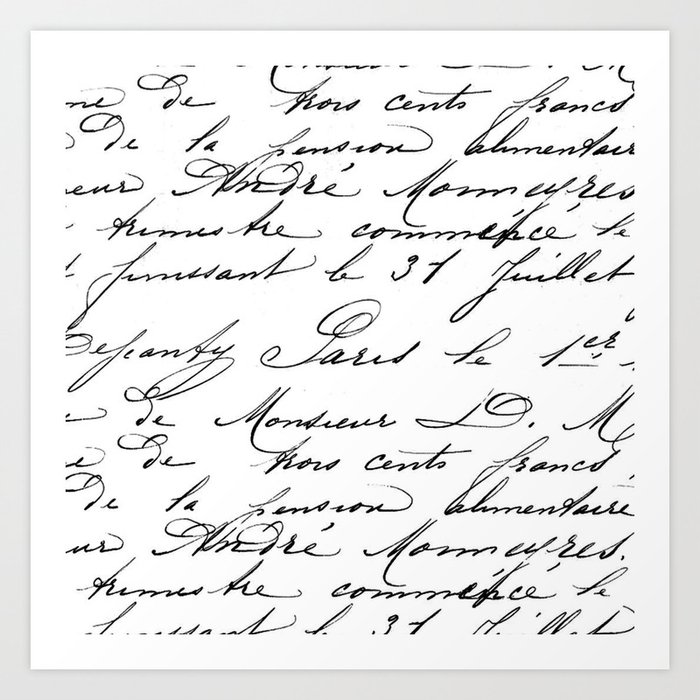 Monsieur D. M
ne de trois cents francs
de la pension alimentair
eur André Monneyres
trimestre commencé le
finissant le 31 Juillet
Paris le 1er
de Monsieur D. M
e de trois cents francs,
De la pension alimentaire
ur André Monneyres.
trimestre commencé le
finissant le 31 Juillet